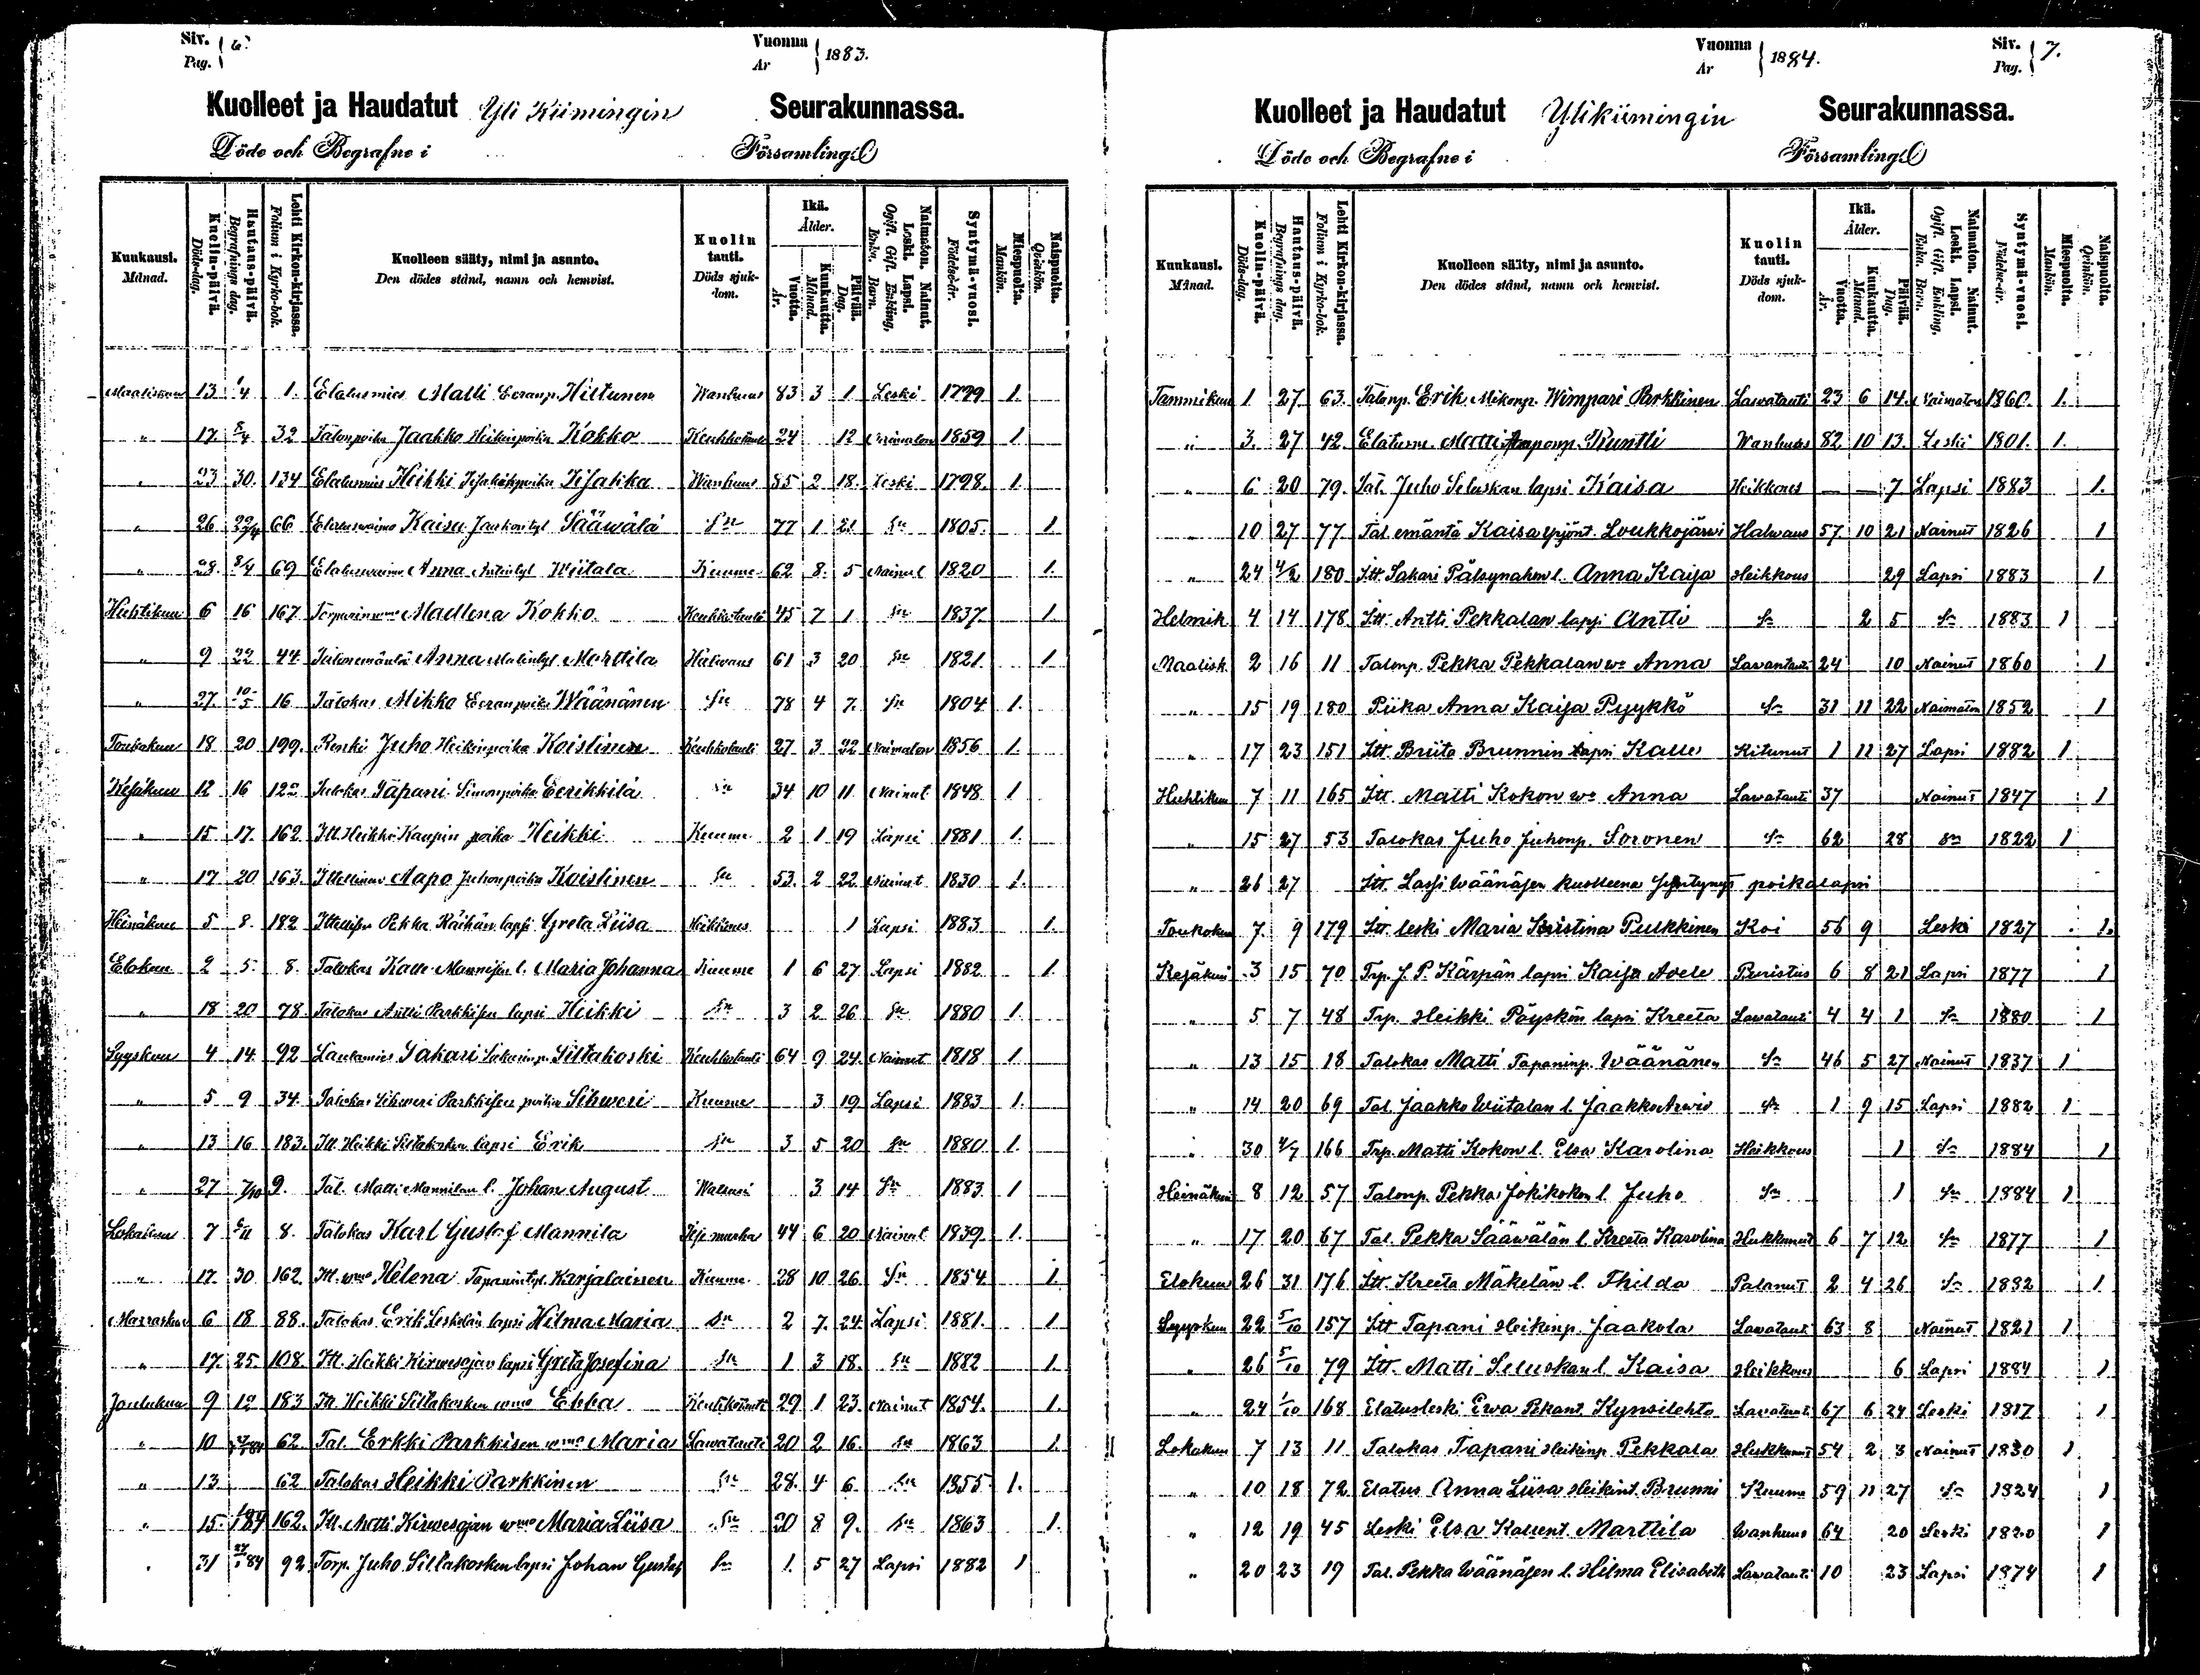 Siv. Pag. 6. Vuonna År 1883.
Kuolleet ja Haudatut Yli Kiimingin Seurakunnassa.
Döde och Begrafne i Församling
Kuukausi. Månad. Kuolin-päivä. Döds-dag. Hautaus-päivä. Begrafnings dag. Lehti Kirkon-kirjassa. Folium i Kyrko-bok. Kuolleen sääty, nimi ja asunto. Den dödes stånd, namn och hemvist. Kuolin tauti. Döds sjuk-dom. Ikä. Ålder. Vuotta. År. Kuukautta. Månad. Päivää. Dag. Naimaton. Nainut. Leski. Lapsi. Ogift. Gift. Enkling. Enka. Barn. Syntymä-vuosi. Födelse-år. Miespuolta. Mankön. Naispuolta. Qvinkön.
Maaliskuu 13 1/4 1. Elatusmies Matti Eeranp. Hiltunen Wanhuus 83 3 1 Leski 1799 1.
" 17. 8/4 32 Talonpoika Jaakko Heikinpoika Kokko Keuhkotauti 24 12 Naimaton 1859 1
" 23 30. 134 Elatusmies Heikki Wanhuus 85 2 18. Leski 1798. 1.
" 26 22/4 66 Elatuswaimo Kaisa Jaakontyt Sääwälä Sn 77 1 21. Sn 1805. 1.
" 28. 8/4 69 Elatuswaimo Anna Antintyt Wiitala Kuume 62 8. 5 Nainut 1820 1.
Huhtikuu 6 16 167. Torparinwmo Madlena Kokko. Keuhkotauti 45 7 1 Sn 1837. 1.
" 9 22 44 Talonemäntä Anna Matintyt Marttila Halwaus 61 3 20 Sn 1821. 1
" 27. 10/5 16 Talokas Mikko Eeranpoika Wäänänen Sn 78 4 7. Sn 1804 1.
Toukokuu 18 20 199. Renki Juho Heikinpoika Koistinen Keuhkotauti 27 3 22 Naimaton 1856 1.
Kesäkuu 12 16 122 Talokas Tapani Simonpoika Eerikkilä Sn 34 10 11 Nainut 1848 1
" 15 17. 162 Itt. Heikki Kaupin poika Heikki Kuume 2 1 19 Lapsi 1881 1.
" 17 20 163. Itsellinen Aapo Juhonpoika Koistinen Sn 53. 2 22 Nainut 1830 1.
Heinäkuu 5 8. 182 Itsellisen Pekka Räihän lapsi Greta Liisa Heikkous 1 Lapsi 1883 1.
Elokuu 2 5. 8. Talokas Kalle Mannisen l. Maria Johanna Kuume 1 6 27 Lapsi 1882 1.
" 18 20 78. Talokas Antti Parkkisen lapsi Heikki Sn 3 2 26 Sn 1880 1.
Syyskuu 4 14. 92 Lautamies Sakari Sakarinp. Siltakoski Keuhkotauti 64 9 24. Nainut 1818 1.
" 5 9 34. Talokas Sihweri Parkkisen poika Sihweri Kuume 3 19 Lapsi 1883 1.
" 13 16 183. Itt. Heikki Siltakosken lapsi Erik Sn 3 5 20 Sn 1880 1.
" 27 7/10 9. Tal. Matti Mannilan l. Johan August 3 14 Sn 1883 1
Lokakuu 7 8. Talokas Karl Gustaf Mannila Itsemurha 44 6 20 Nainut 1839. 1.
" 17. 30 162 Itt. wmo Helena Tapanintyt. Karjalainen Kuume 28 10 26. Sn 1854. 1.
Marraskuu 6 18 88. Talokas Erik Leskelän lapsi Hilma Maria Sn 2 7 24. Lapsi 1881. 1
" 17. 25. 108. Itt. Heikki Kirwesojan lapsi Greta Josefina Sn 1 3 18. Sn 1882 1.
Joulukuu 9 12 183 Itt. Heikki Siltakosken wmo Ebba Keuhkotauti 29 1 23. Nainut 1854. 1.
" 10 62. Tal. Erkki Parkkisen wmo Maria Lawatauti 20 2 16. Sn 1863 1.
" 13 62 Talokas Heikki Parkkinen Sn 28. 4 6 Sn 1855. 1.
" 15. 162. Itt. Matti Kirwesojan wmo Maria Liisa Sn 20 8 9. Sn 1863 1.
" 31 92 Torp. Juho Siltakosken lapsi Johan Gustaf Sn 1. 5 27 Lapsi 1882 1
Vuonna År 1884. Siv. Pag. 7.
Kuolleet ja Haudatut Ylikiimingin Seurakunnassa.
Döde och Begrafne i Församling
Kuukausi. Månad. Kuolin-päivä. Döds-dag. Hautaus-päivä. Begrafnings dag. Lehti Kirkon-kirjassa. Folium i Kyrko-bok. Kuolleen sääty, nimi ja asunto. Den dödes stånd, namn och hemvist. Kuolin tauti. Döds sjuk-dom. Ikä. Ålder. Vuotta. År. Kuukautta. Månad. Päivää. Dag. Naimaton. Nainut. Leski. Lapsi. Ogift. Gift. Enkling. Enka. Barn. Syntymä-vuosi. Födelse-år. Miespuolta. Mankön. Naispuolta. Qvinkön.
Tammikuu 1 27 63. Talonp. Erik Mikonp. Wimpari Parkkinen Lawatauti 23 6 14. Naimaton 1860. 1.
" 3. 27 42. Elatusm. Matti Kuntti Wanhuus 82 10 13. Leski 1801. 1.
" 6 20 79. Tal. Juho Seluskan lapsi Kaisa Heikkous — — 7 Lapsi 1883 1.
" 10 27 77 Tal. emäntä Kaisa Yrjönt. Loukkojärwi Halwaus 57. 10 21 Nainut 1826 1
" 24 4/2 180 Itt. Sakari Pälsynahon l. Anna Kaisa Heikkous 29 Lapsi 1883 1
Helmik 4 14 178. Itt. Antti Pekkalan lapsi Antti Sn 2 5 Sn 1883 1
Maalisk. 2 16 11 Talonp. Pekka Pekkalan wo Anna Lawantauti 24 10 Nainut 1860 1
" 15 19 180 Piika Anna Kaisa Pyykkö Sn 31 11 22 Naimaton 1852 1
" 17 23 151 Itt. Briita Brunnin lapsi Kalle Kitunut 1 11 27 Lapsi 1882 1
Huhtikuu 7 11 165 Itt. Matti Kokon wo Anna Lawatauti 37 Nainut 1847 1
" 15 27 53 Talokas Juho Juhonp. Soronen Sn 62 28 Sn 1822 1
" 26 27 Itt. Lassi Wäänäsen kuolleena syntynyt poikalapsi
Toukokuu 7. 9 179 Itt. leski Maria Kristina Pulkkinen Koi 56 9 Leski 1827 1.
Kesäkuu 3 15 70 Trp. J. P. Kärpän lapsi Kaisa Adele Puristus 6 8 21 Lapsi 1877 1
" 5 7 48 Trp. Heikki Pöyskön lapsi Kreeta Lawatauti 4 4 1 Sn 1880 1
" 13 15 18 Talokas Matti Tapaninp. Wäänänen Sn 46 5 27 Nainut 1837 1
" 14 20 69 Tal. Jaakko Wiitalan l. Jaakko Arwid Sn 1 9 15 Lapsi 1882 1
" 30 4/7 166 Trp. Matti Kokon l. Elsa Karolina Heikkous 1 Sn 1884 1
Heinäkuu 8 12 57 Talonp. Pekka Jokikokon l. Juho Sn 1 Sn 1884 1
" 17 20 67 Tal. Pekka Sääwälän l. Kreeta Karolina Hukkunut 6 7 12 Sn 1877 1
Elokuu 26 31 176 Itt. Kreeta Mäkelän l. Thilda Palanut 2 4 26 Sn 1882 1
Syyskuu 22 5/10 157 Itt Tapani Heikinp. Jaakola Lawataut. 63 8 Nainut 1821 1
" 26 5/10 79 Itt. Matti Seluskan l. Kaisa Heikkous 6 Lapsi 1884 1
" 24 1/10 168 Elatusleski Ewa Pekant. Kynsilehto Lawataut. 67 6 24 Leski 1817 1
Lokakuu 7 13 11 Talokas Tapani Heikinp. Pekkala Hukkunut 54 2 3 Nainut 1830 1
" 10 18 72 Elatus Anna Liisa Heikint. Brunni Kuume 59 11 27 Sn 1824 1
" 12 19 45 Leski Elsa Kallent. Marttila Wanhuus 64 20 Leski 1820 1
" 20 23 19 Tal. Pekka Wäänäsen l. Hilma Elisabeth Lawatauti 10 23 Lapsi 1874 1